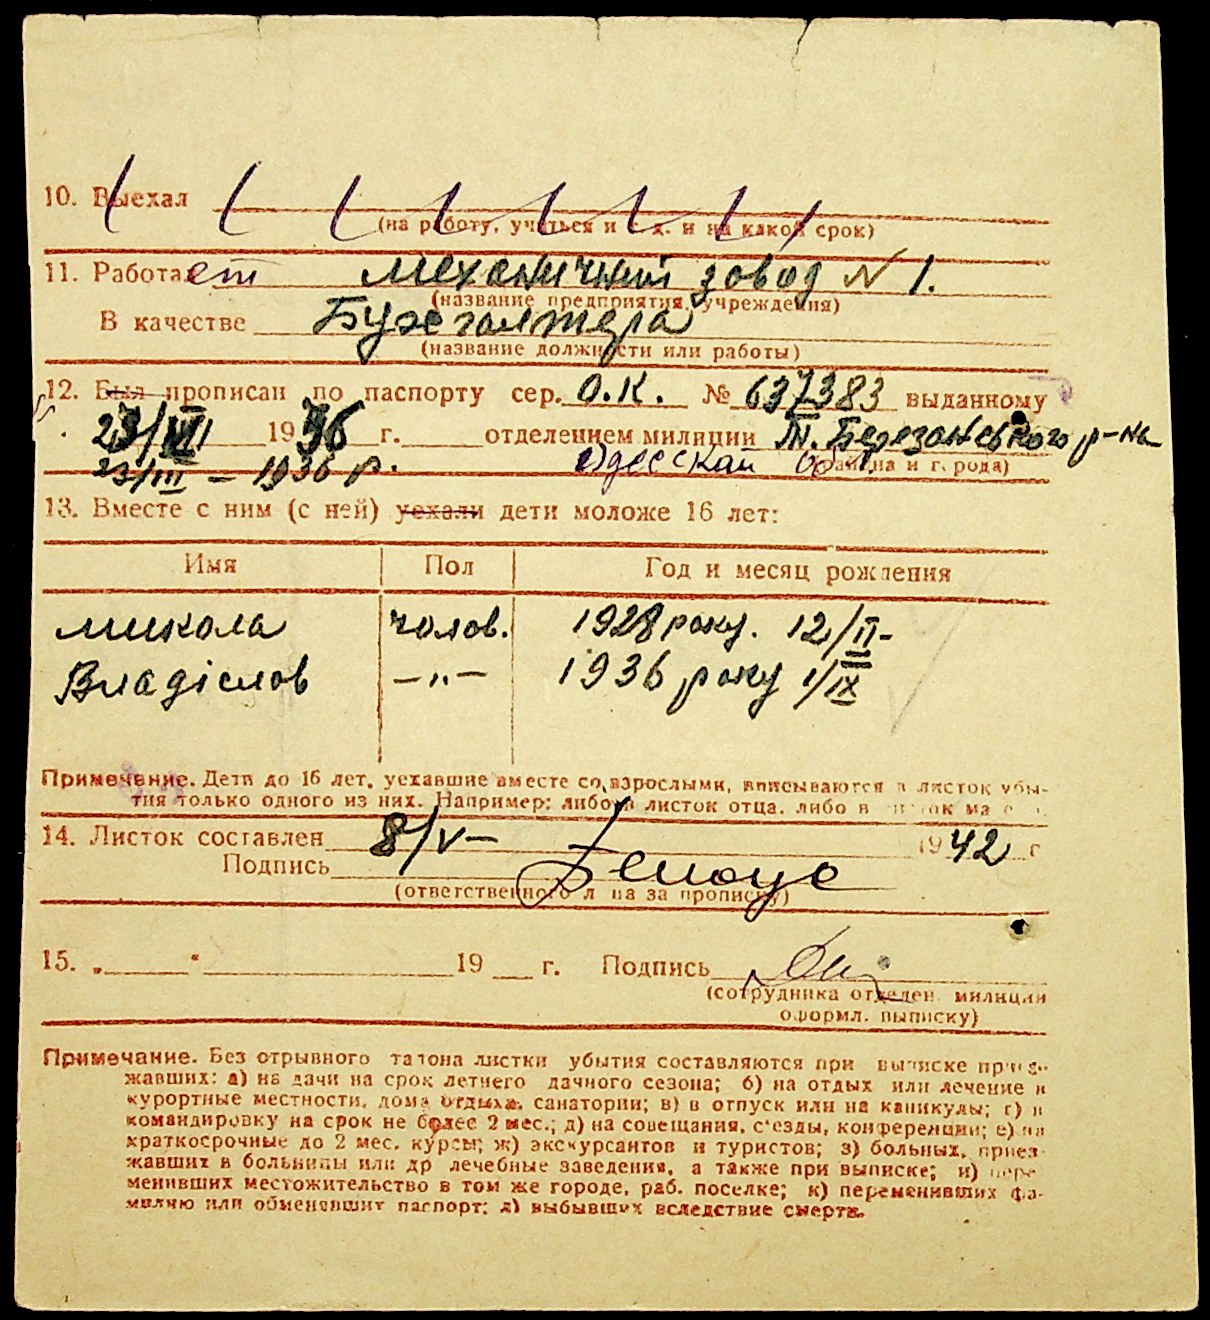 10. Выехал
(на работу, учиться и т. д. и на какой срок)
11. Работает механичний завод N 1.
(название предприятия, учреждения)
В качестве Бухгалтера
(название должности или работы)
12. Был прописан по паспорту сер. О.К. № 637383 выданному
23/VIII 1936 г. отделением милиции Березанського р-на
23/III - 1936 р. Одесской обл. района и города)
13. Вместе с ним (с ней) уехали дети моложе 16 лет:
Имя Пол Год и месяц рождения
Микола чолов. 1928 року. 12/II-
Владіслов -"- 1936 року 1/IX
Примечание. Дети до 16 лет, уехавшие вместе со взрослыми, вписываются в листок убы-
тия только одного из них. Например: либо в листок отца, либо в листок
14. Листок составлен 8/V- 1942 г
Подпись Белоус
(ответственного лица за прописку)
15. „ “ 19 г. Подпись
(сотрудника отделен. милиции
оформл. выписку)
Примечание. Без отрывного талона листки убытия составляются при выписке приез-
жавших: а) на дачи на срок летнего дачного сезона; б) на отдых или лечение в
курортные местности, дома отдыха, санатории; в) в отпуск или на каникулы; г) в
командировку на срок не более 2 мес.; д) на совещания, с'езды, конференции; е) на
краткосрочные до 2 мес. курсы; ж) экскурсантов и туристов; з) больных, приез-
жавших в больницы или др лечебные заведения, а также при выписке; и) пере-
менивших местожительство в том же городе, раб. поселке; к) переменивших фа-
милию или обменявших паспорт; л) выбывших вследствие смерти.